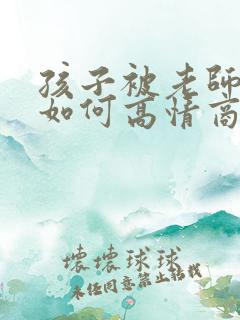 孩子被老師
如何高情商
壞壞球球
未經同意禁止轉載